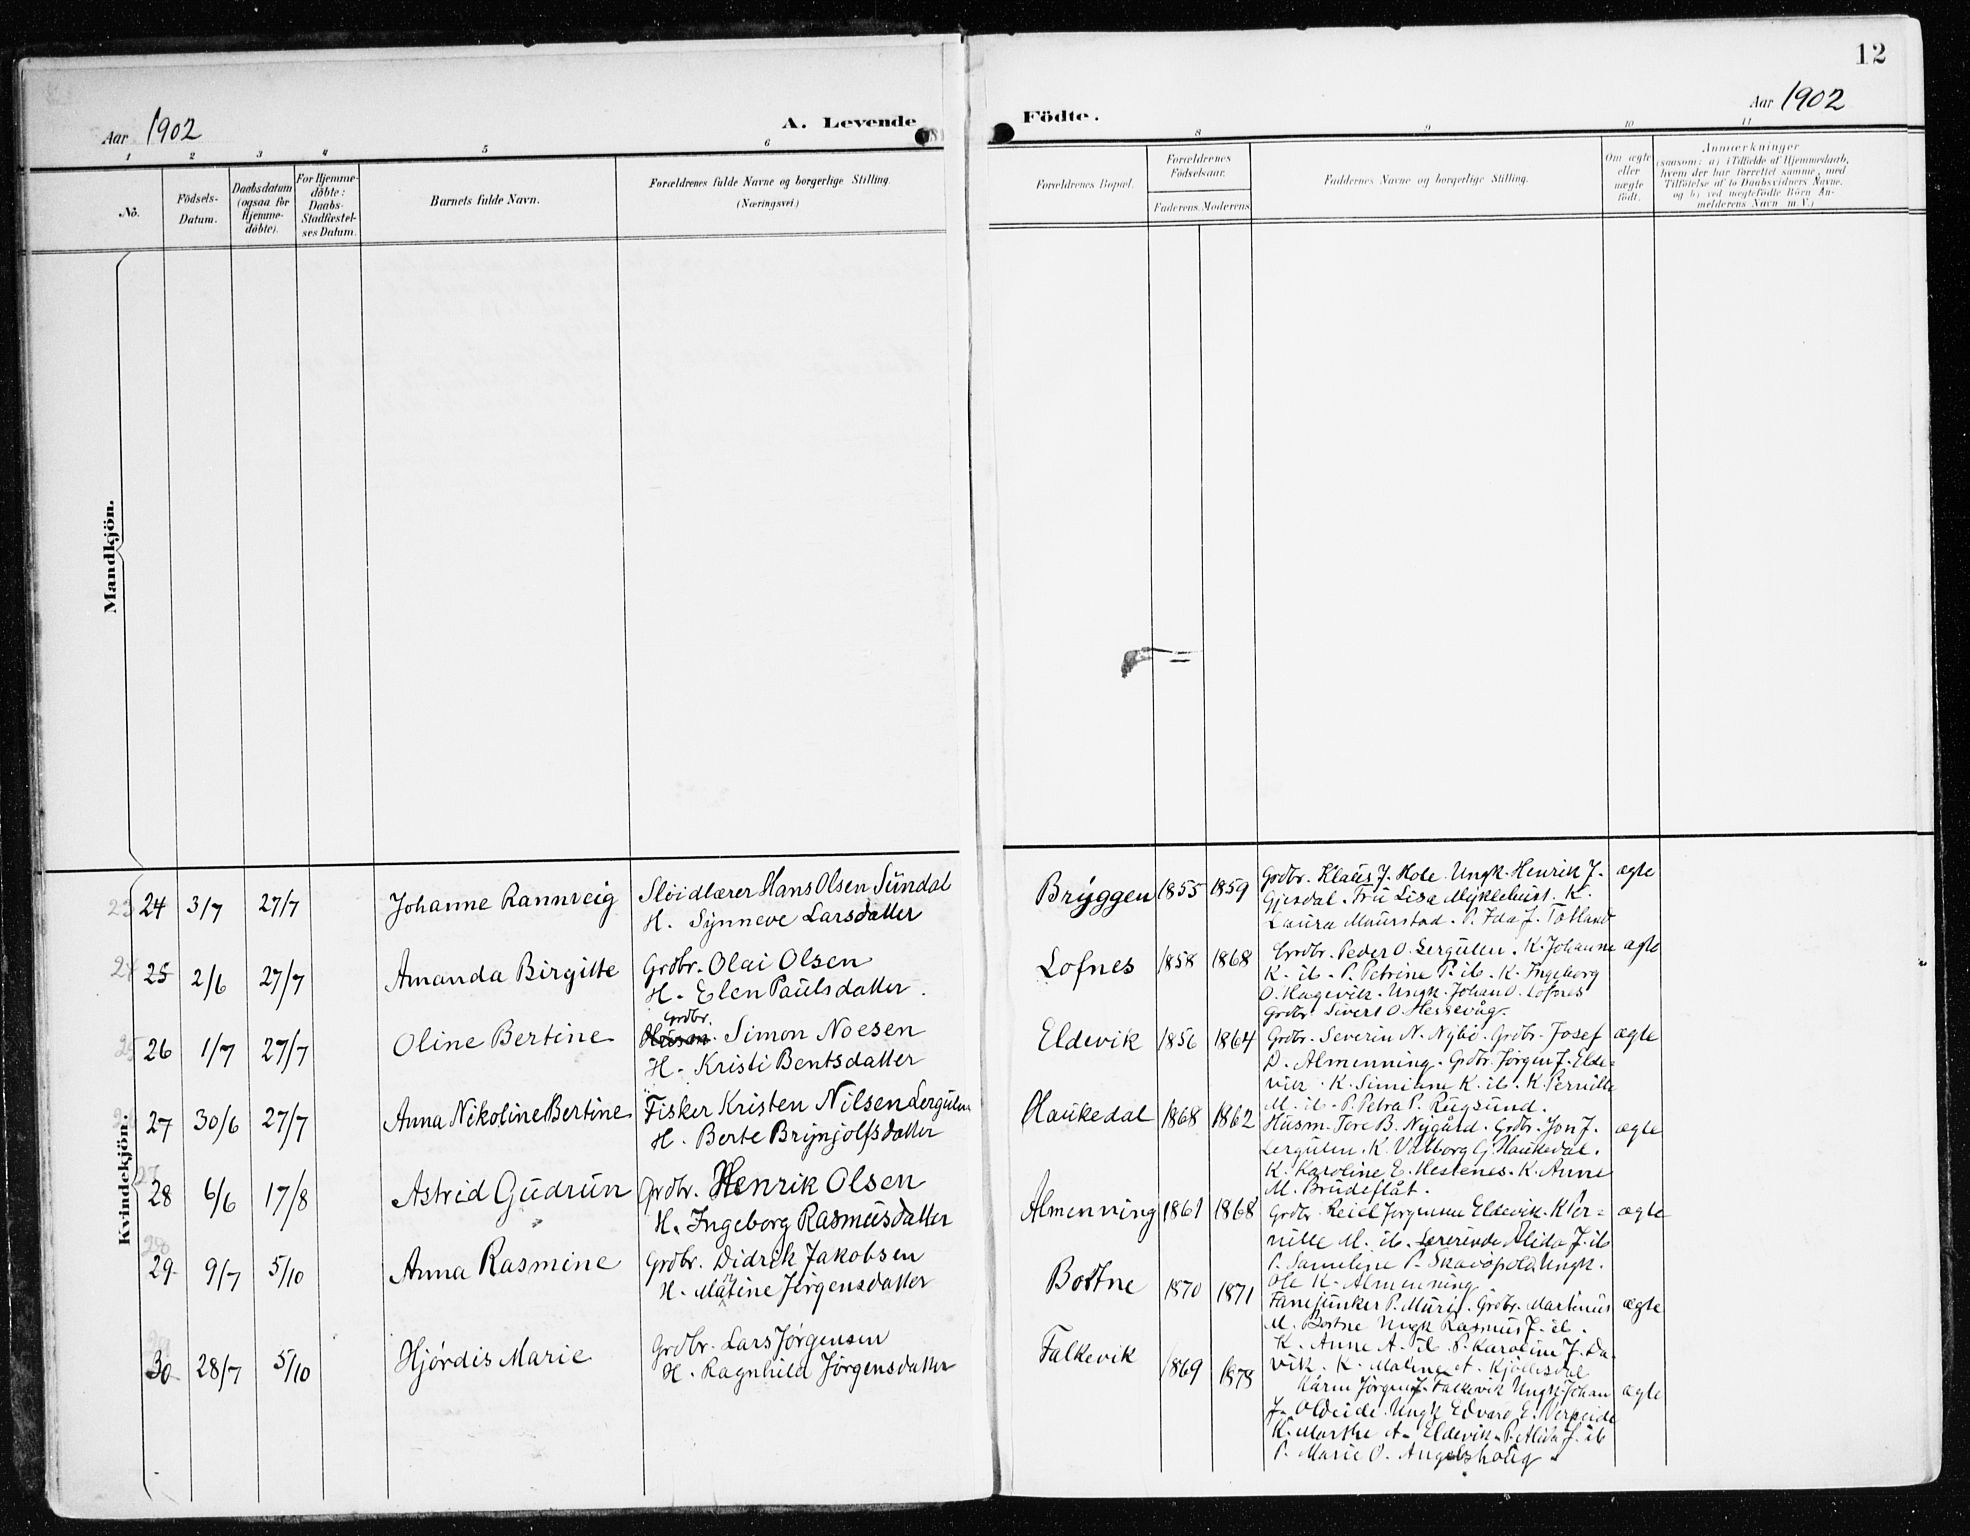 12
Aar 1902
A. Levende
Födte.
Aar 1902
1 2 3 4 5 6
8 9 10 11
No.
Födsels-
Datum.
Daabsdatum
(ogsaa for
Hjemme-
döbte).
For Hjemme-
döbte:
Daabs-
Stadfæstel-
ses Datum.
Barnets fulde Navn.
Forældrenes fulde Navne og borgerlige Stilling.
(Næringsvei)
Forældrenes Bopæl.
Forældrenes
Födselsaar.
Faderens. Moderens.
Faddernes Navne og borgerlige Stilling.
Om ægte
eller
uægte
födt.
Anmærkninger
(saasom: a) i Tilfælde af Hjemmedaab,
hvem der har forrettet samme, med
Tilföielse af to Daabsvidners Navne.
og b) ved uegtefödte Börn An-
melderens Navn m. V.)
Mandkjön.
Kvindekjön.
23 24 3/7 27/7 Johanne Rannveig
Slöidlærer Hans Olsen Sundal
H. Synneve Larsdatter
Bryggen 1855 1859
Grdbr. Klaus J. Hole. Ungk. Henrik J.
Gjesdal. Fru Lisa Myklebust. K.
Laura Maurstad. P. Ida J. Totland
ægte
24 25 2/6 27/7 Amanda Birgitte
Grdbr. Olai Olsen
H. Elen Paulsdatter.
Lofnes 1858 1868
Grdbr. Peder O. Lergulen. K. Johanne
K. ib. P. Petrine P. ib. K. Ingeborg
O. Hagevik. Ungk. Johan O. Lofnes
Grdbr. Sivert O. Hessevåg.
ægte
25 26 1/7 27/7 Oline Bertine
Grdbr.
Husm. Simon Noesen
H. Kristi Bentsdatter
Eldevik 1856 1864
Grdbr. Severin N. Nybø. Grdbr. Josef
D. Almenning. Grdbr. Jørgen J. Elde-
vik. K. Simiane K. ib. K. Pernille
M. ib. P. Petra P. Rugsund.
ægte
27 30/6 27/7 Anna Nikoline Bertine
Fisker Kristen Nilsen Lergulen
H. Berte Brynjolfsdatter
Haukedal 1868 1862
Husm. Tore B. Nygård. Grdbr. Jon J.
Lergulen. K. Valborg G. Haukedal.
K. Karoline E. Hestenes. K. Anne
M. Brudeflåt.
ægte
27 28 6/6 17/8 Astrid Gudrun
Grdbr. Henrik Olsen
H. Ingeborg Rasmusdatter
Almenning 1861 1868
Grdbr. Reiel Jørgensen Eldevik. K. Per-
nille M. ib. Lærerinde Alida J. ib
P. Sameline P. Ungk.
Ole K. Almenning
ægte
28 29 9/7 5/10 Anna Rasmine
Grdbr. Didrik Jakobsen
H. Matine Jörgensdatter
Bortne 1870 1871
Fanejunker P. Muri. Grdbr. Martinus
M. Bortne Ungk Rasmus J. ib.
K. Anne A. ib. P. Karoline J. Da-
vik. K. Matine A. Kjøllesdal
ægte
30 28/7 5/10 Hjördis Marie
Grdbr. Lars Jørgensen
H. Ragnhild Jørgensdatter
Falkevik 1869 1878
Kårm. Jørgen J. Falkevik Ungk. Johan
J. Oldeide. Ungk Edvard E. Verpeide
K. Marthe A. Eldevik. P. Alida J. ib
P. Marie O. Angelshoug
ægte